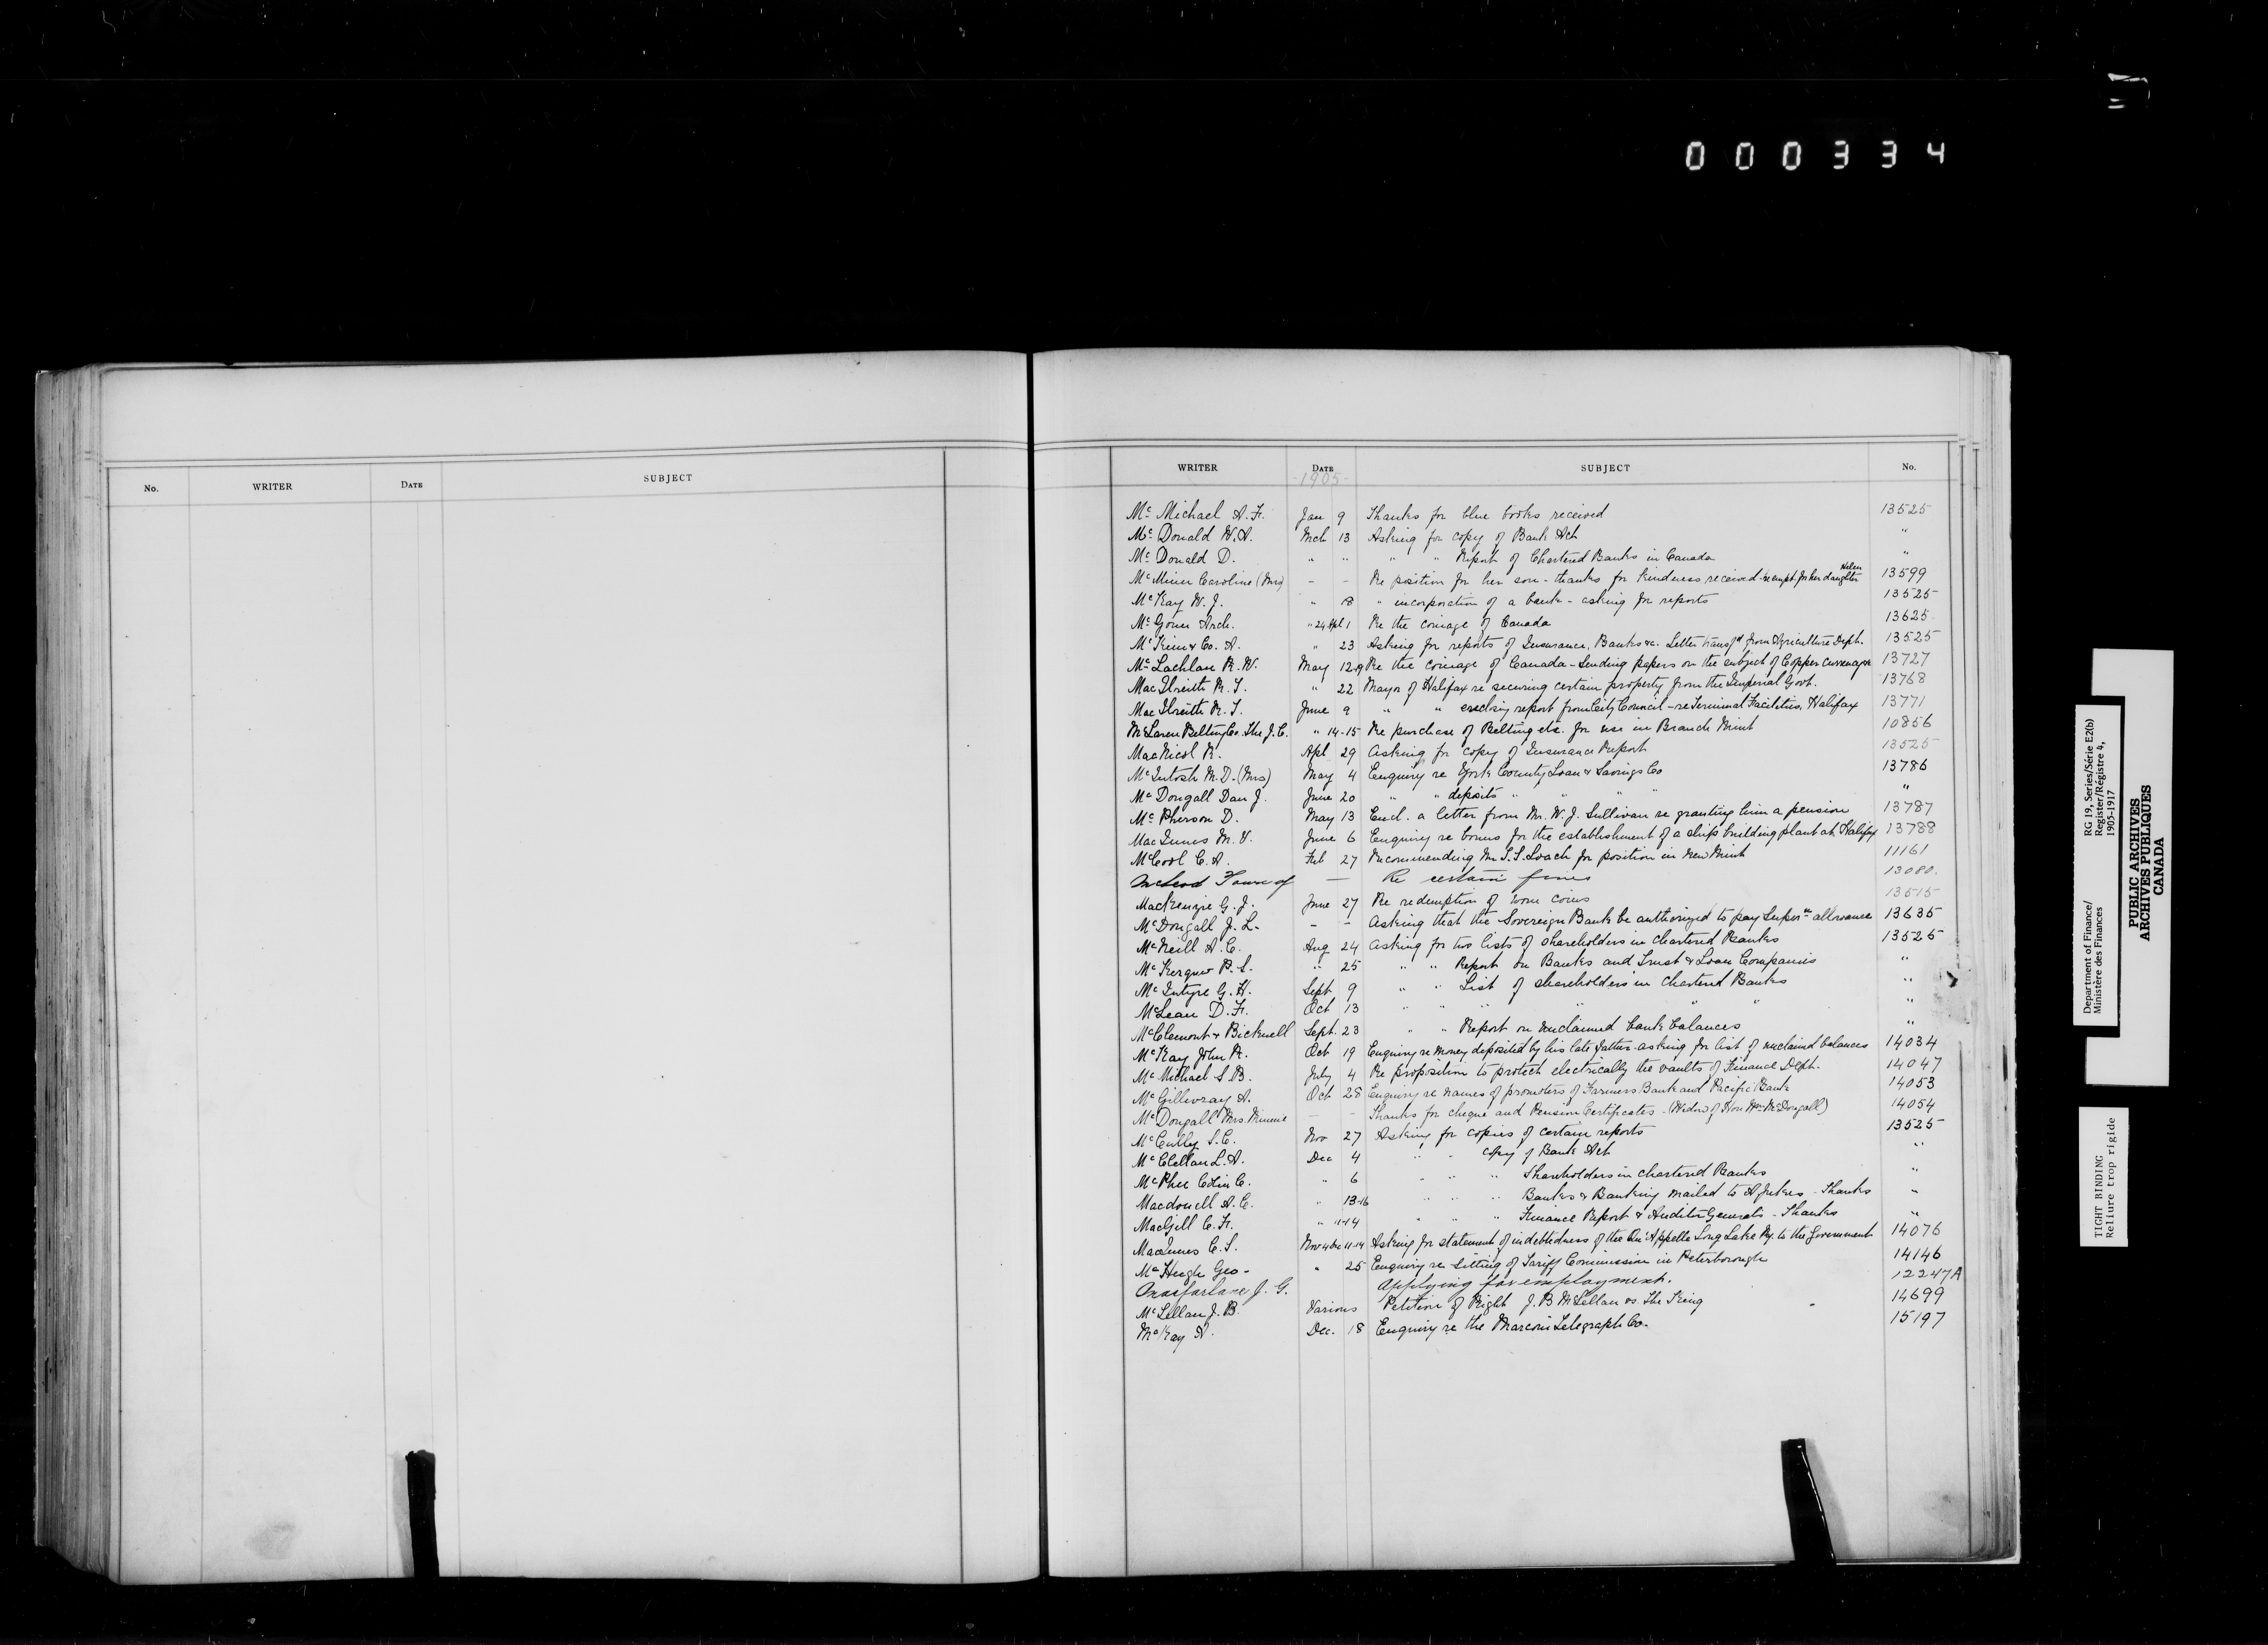 000334
No. WRITER DATE SUBJECT
WRITER DATE SUBJECT No.
1905
Mc Michael A. F. Jan 9 Thanks for blue books received 13525
Mc Donald W. A. Mch 13 Asking for copy of Bank Act "
Mc Donald D. " " " " Report of Chartered Banks in Canada "
Mc Minn Caroline (Mrs) - - Re position for her son - thanks for kindness received - re empt. for her daughter Helen 13599
Mc Kay W. J. " 18 " incorporation of a bank - asking for reports 13525
Mc Goun Arch. " 24 Apl 1 Re the coinage of Canada 13625
Mc Kim & Co. A. " 23 Asking for reports of Insurance, Banks &c. Letter transfd from Agriculture Dept. 13525
Mc Lachlan R. W. May 12 Re the coinage of Canada - Sending papers on the subject of Copper Currency 13727
Mac Ilreith R. T. " 22 Mayor of Halifax re securing certain property from the Imperial Govt. 13768
Mac Ilreith R. T. June 9 " " enclosing report from City Council - re Terminal Facilities, Halifax 13771
McLaren Belting Co. The J. C. " 14-15 Re purchase of Belting etc. for use in Branch Mint 10856
MacNicol R. Apl 29 Asking for copy of Insurance Report 13525
Mc Intosh M. D. (Mrs) May 4 Enquiry re York County Loan & Savings Co 13786
Mc Dougall Dan J. June 20 " " deposits " " " " "
Mc Pherson D. May 13 Encl. a letter from Mr. W. J. Sullivan re granting him a pension 13787
MacInnes M. V. June 6 Enquiry re bonus for the establishment of a ship building plant at Halifax 13788
McCool C. A. Feb 27 Recommending Mr S. S. Loach for position in new Mint 11161
McLeod Town of — Re certain fines 13080.
MacKenzie G. J. June 27 Re redemption of worn coins 13515
McDougall J. L. - - Asking that the Sovereign Bank be authorized to pay Super'n allowance 13635
McNeill A. C. Aug 24 Asking for two lists of shareholders in Chartered Banks 13525
Mc Kergow B. S. " 25 " " Report on Banks and Trust & Loan Companies "
Mc Intyre G. H. Sept 9 " " List of shareholders in Chartered Banks "
McLean D. F. Oct 13 " " " " " " "
McClemont & Bicknell Sept. 23 " " Report on unclaimed bank balances "
Mc Kay John R. Oct 19 Enquiry re money deposited by his late father - asking for list of unclaimed balances 14034
Mc Michael S. B. July 4 Re proposition to protect electrically the vaults of Finance Dept. 14047
Mc Gillivray A. Oct 28 Enquiry re names of promoters of Farmers Bank and Pacific Bank 14053
Mc Dougall Mrs. Minnie - - Thanks for cheque and Pension Certificates - (Widow of Hon Wm McDougall) 14054
Mc Cully S. C. Nov 27 Asking for copies of certain reports 13525
Mc Clellan L. A. Dec 4 " " copy of Bank Act "
Mc Phee Colin C. " 6 " " " Shareholders in Chartered Banks "
Macdonell A. C. " 13-16 " " " Banks & Banking mailed to A Jukes - Thanks "
MacGill C. F. " 11-14 " " " Finance Report & Auditor General's - Thanks "
MacInnes C. S. Nov 4 Dec 11-14 Asking for statement of indebtedness of the Qu'Appelle Long Lake Ry. to the Government 14076
Mc Hugh Geo - " 25 Enquiry re sitting of Tariff Commission in Peterborough 14146
Macfarlane J. G. Applying for employment. 12247A
Mc Lellan J. B. Various Petition of Right J. B McLellan vs. The King 14699
Mc Kay A. Dec. 18 Enquiry re the Marconi Telegraph Co. 15197
Department of Finance/
Ministère des Finances
RG 19, Series/Série E2(b)
Register/Régistre 4,
1905-1917
PUBLIC ARCHIVES
ARCHIVES PUBLIQUES
CANADA
TIGHT BINDING
Reliure trop rigide